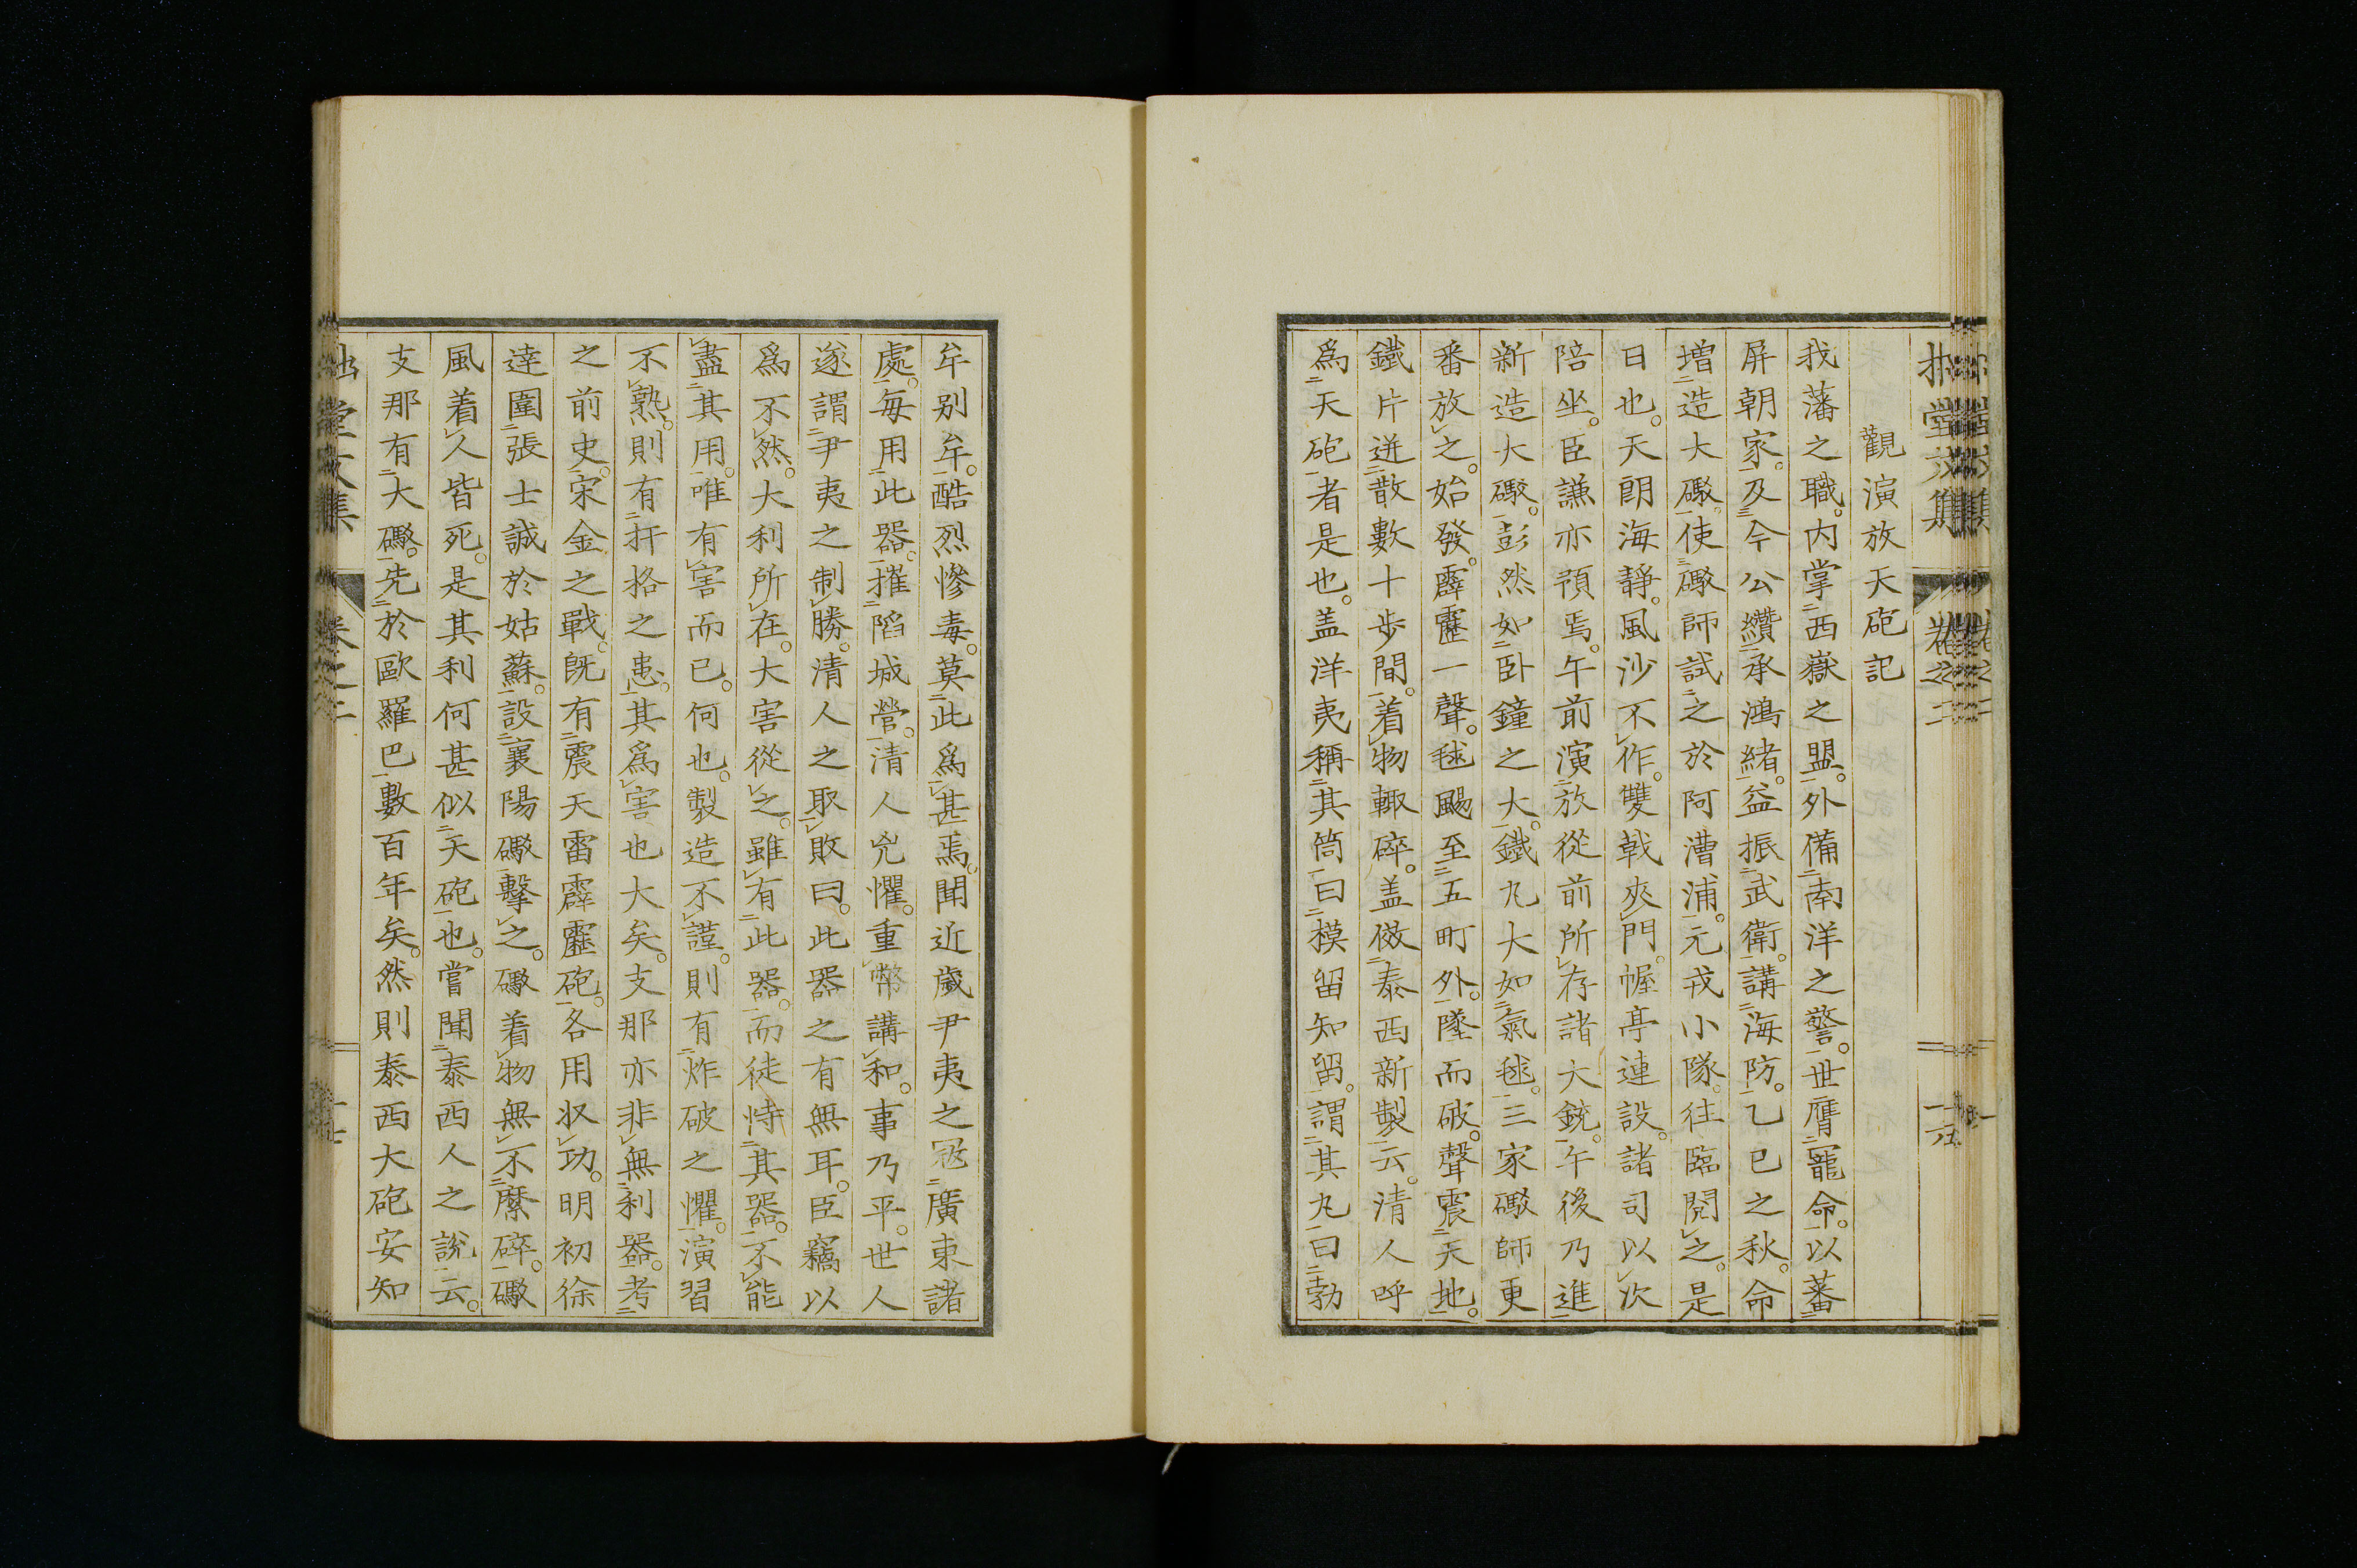 觀演放天砲記
我藩之職。内掌西嶽之盟。外備南洋之警。世膺寵命。以蕃
屏朝家。及今公纘承鴻緒。益振武衛。講海防。乙巳之秋。命
増造大礮。使礮師試之於阿漕浦。元戎小隊。往臨閲之。是
日也。天朗海靜。風沙不作。雙戟夾門。幄亭連設。諸司以次
陪坐。臣謙亦預焉。午前演放從前所存諸大銃。午後乃進
新造大礮。彭然如臥鐘之大。鐵九大如氣毬。三家礮師更
番放之。始發。霹靂一聲。毬颺至五町外。墜而破。聲震天地。
鐵片迸散數十歩間。着物輙碎。盖倣泰西新製云。清人呼
爲天砲者是也。盖洋夷稱其筒曰模留知留。謂其丸曰勃
牟別牟。酷烈慘毒。莫此爲甚焉。聞近歲尹夷之冦廣東諸
處。毎用此器。摧陷城營。清人兇懼。重幣講和。事乃平。世人
遂謂尹夷之制勝。清人之取敗曰。此器之有無耳。臣竊以
爲不然。大利所在。大害從之。雖有此器。而徒恃其器。不能
盡其用。唯有害而已。何也。製造不謹。則有炸破之懼。演習
不熟。則有扞格之患。其爲害也大矣。支那亦非無利器。考
之前史。宋金之戰。既有震天雷霹靂砲。各用収功。明初徐
達圍張士誠於姑蘇。設襄陽礮擊之。礮着物無不縻碎。礮
風着人皆死。是其利何甚似天砲也。嘗聞泰西人之説云。
支那有大礮。先於歐羅巴數百年矣。然則泰西大砲安知
堂文集 卷之二